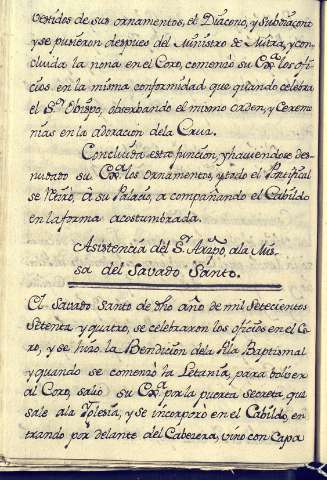 vestidos de sus ornamentos, el Diácono, y Subdiácono
y se pusieron despues del Ministro de Mitra, y con-
cluida la nona en el Coro, comenzo su Exª los ofi-
cios en la misma conformidad que quando celebra
el Sr Obispo, observando el mismo orden, y Ceremo
nias en la adoracion dela Cruz.
Concluida esta funcion, y haviendose des-
nudado su Exª los ornamentos, y todo el Pontifical
se retiró, á su Palacio, acompañando el Cabildo
en la forma acostumbrada.
Asistencia del Sr Arzpo, ala Mis-
sa del Savado Santo.
El Savado Santo de dho año de mil Setecientos
Setenta y quatro, se celebraron los oficios en el Co
ro, y se hizo la Bendicion dela Pila Baptismal
y quando se comenzó la Letanía, para bolver
al Coro, salio su Exª por la puerta Secreta, que
sale ala Iglesia, y se incorporo en el Cabildo, en
trando por delante del Cabecera, vino con Capa